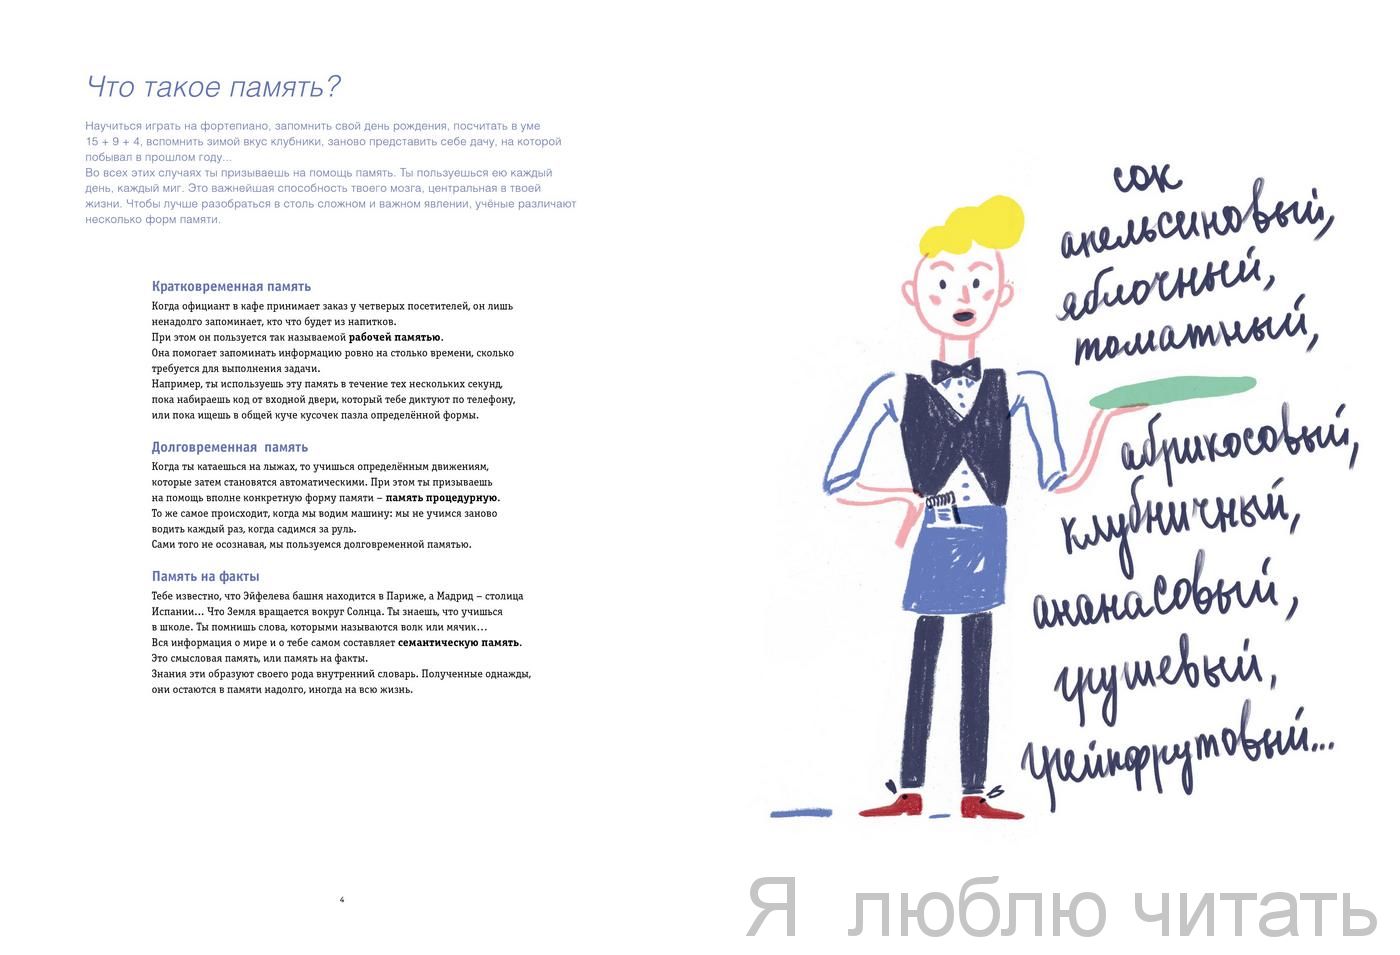 Что такое память?
Научиться играть на фортепиано, запомнить свой день рождения, посчитать в уме
15 + 9 + 4, вспомнить зимой вкус клубники, заново представить себе дачу, на которой
побывал в прошлом году...
Во всех этих случаях ты призываешь на помощь память. Ты пользуешься ею каждый
день, каждый миг. Это важнейшая способность твоего мозга, центральная в твоей
жизни. Чтобы лучше разобраться в столь сложном и важном явлении, учёные различают
несколько форм памяти.
Кратковременная память
Когда официант в кафе принимает заказ у четверых посетителей, он лишь
ненадолго запоминает, кто что будет из напитков.
При этом он пользуется так называемой рабочей памятью.
Она помогает запоминать информацию ровно на столько времени, сколько
требуется для выполнения задачи.
Например, ты используешь эту память в течение тех нескольких секунд,
пока набираешь код от входной двери, который тебе диктуют по телефону,
или пока ищешь в общей куче кусочек пазла определённой формы.
Долговременная память
Когда ты катаешься на лыжах, то учишься определённым движениям,
которые затем становятся автоматическими. При этом ты призываешь
на помощь вполне конкретную форму памяти – память процедурную.
То же самое происходит, когда мы водим машину: мы не учимся заново
водить каждый раз, когда садимся за руль.
Сами того не осознавая, мы пользуемся долговременной памятью.
Память на факты
Тебе известно, что Эйфелева башня находится в Париже, а Мадрид – столица
Испании... Что Земля вращается вокруг Солнца. Ты знаешь, что учишься
в школе. Ты помнишь слова, которыми называются волк или мячик...
Вся информация о мире и о тебе самом составляет семантическую память.
Это смысловая память, или память на факты.
Знания эти образуют своего рода внутренний словарь. Полученные однажды,
они остаются в памяти надолго, иногда на всю жизнь.
4
сок
апельсиновый,
яблочный,
томатный,
абрикосовый,
клубничный,
ананасовый,
грушевый,
грейпфрутовый...
Я люблю читать